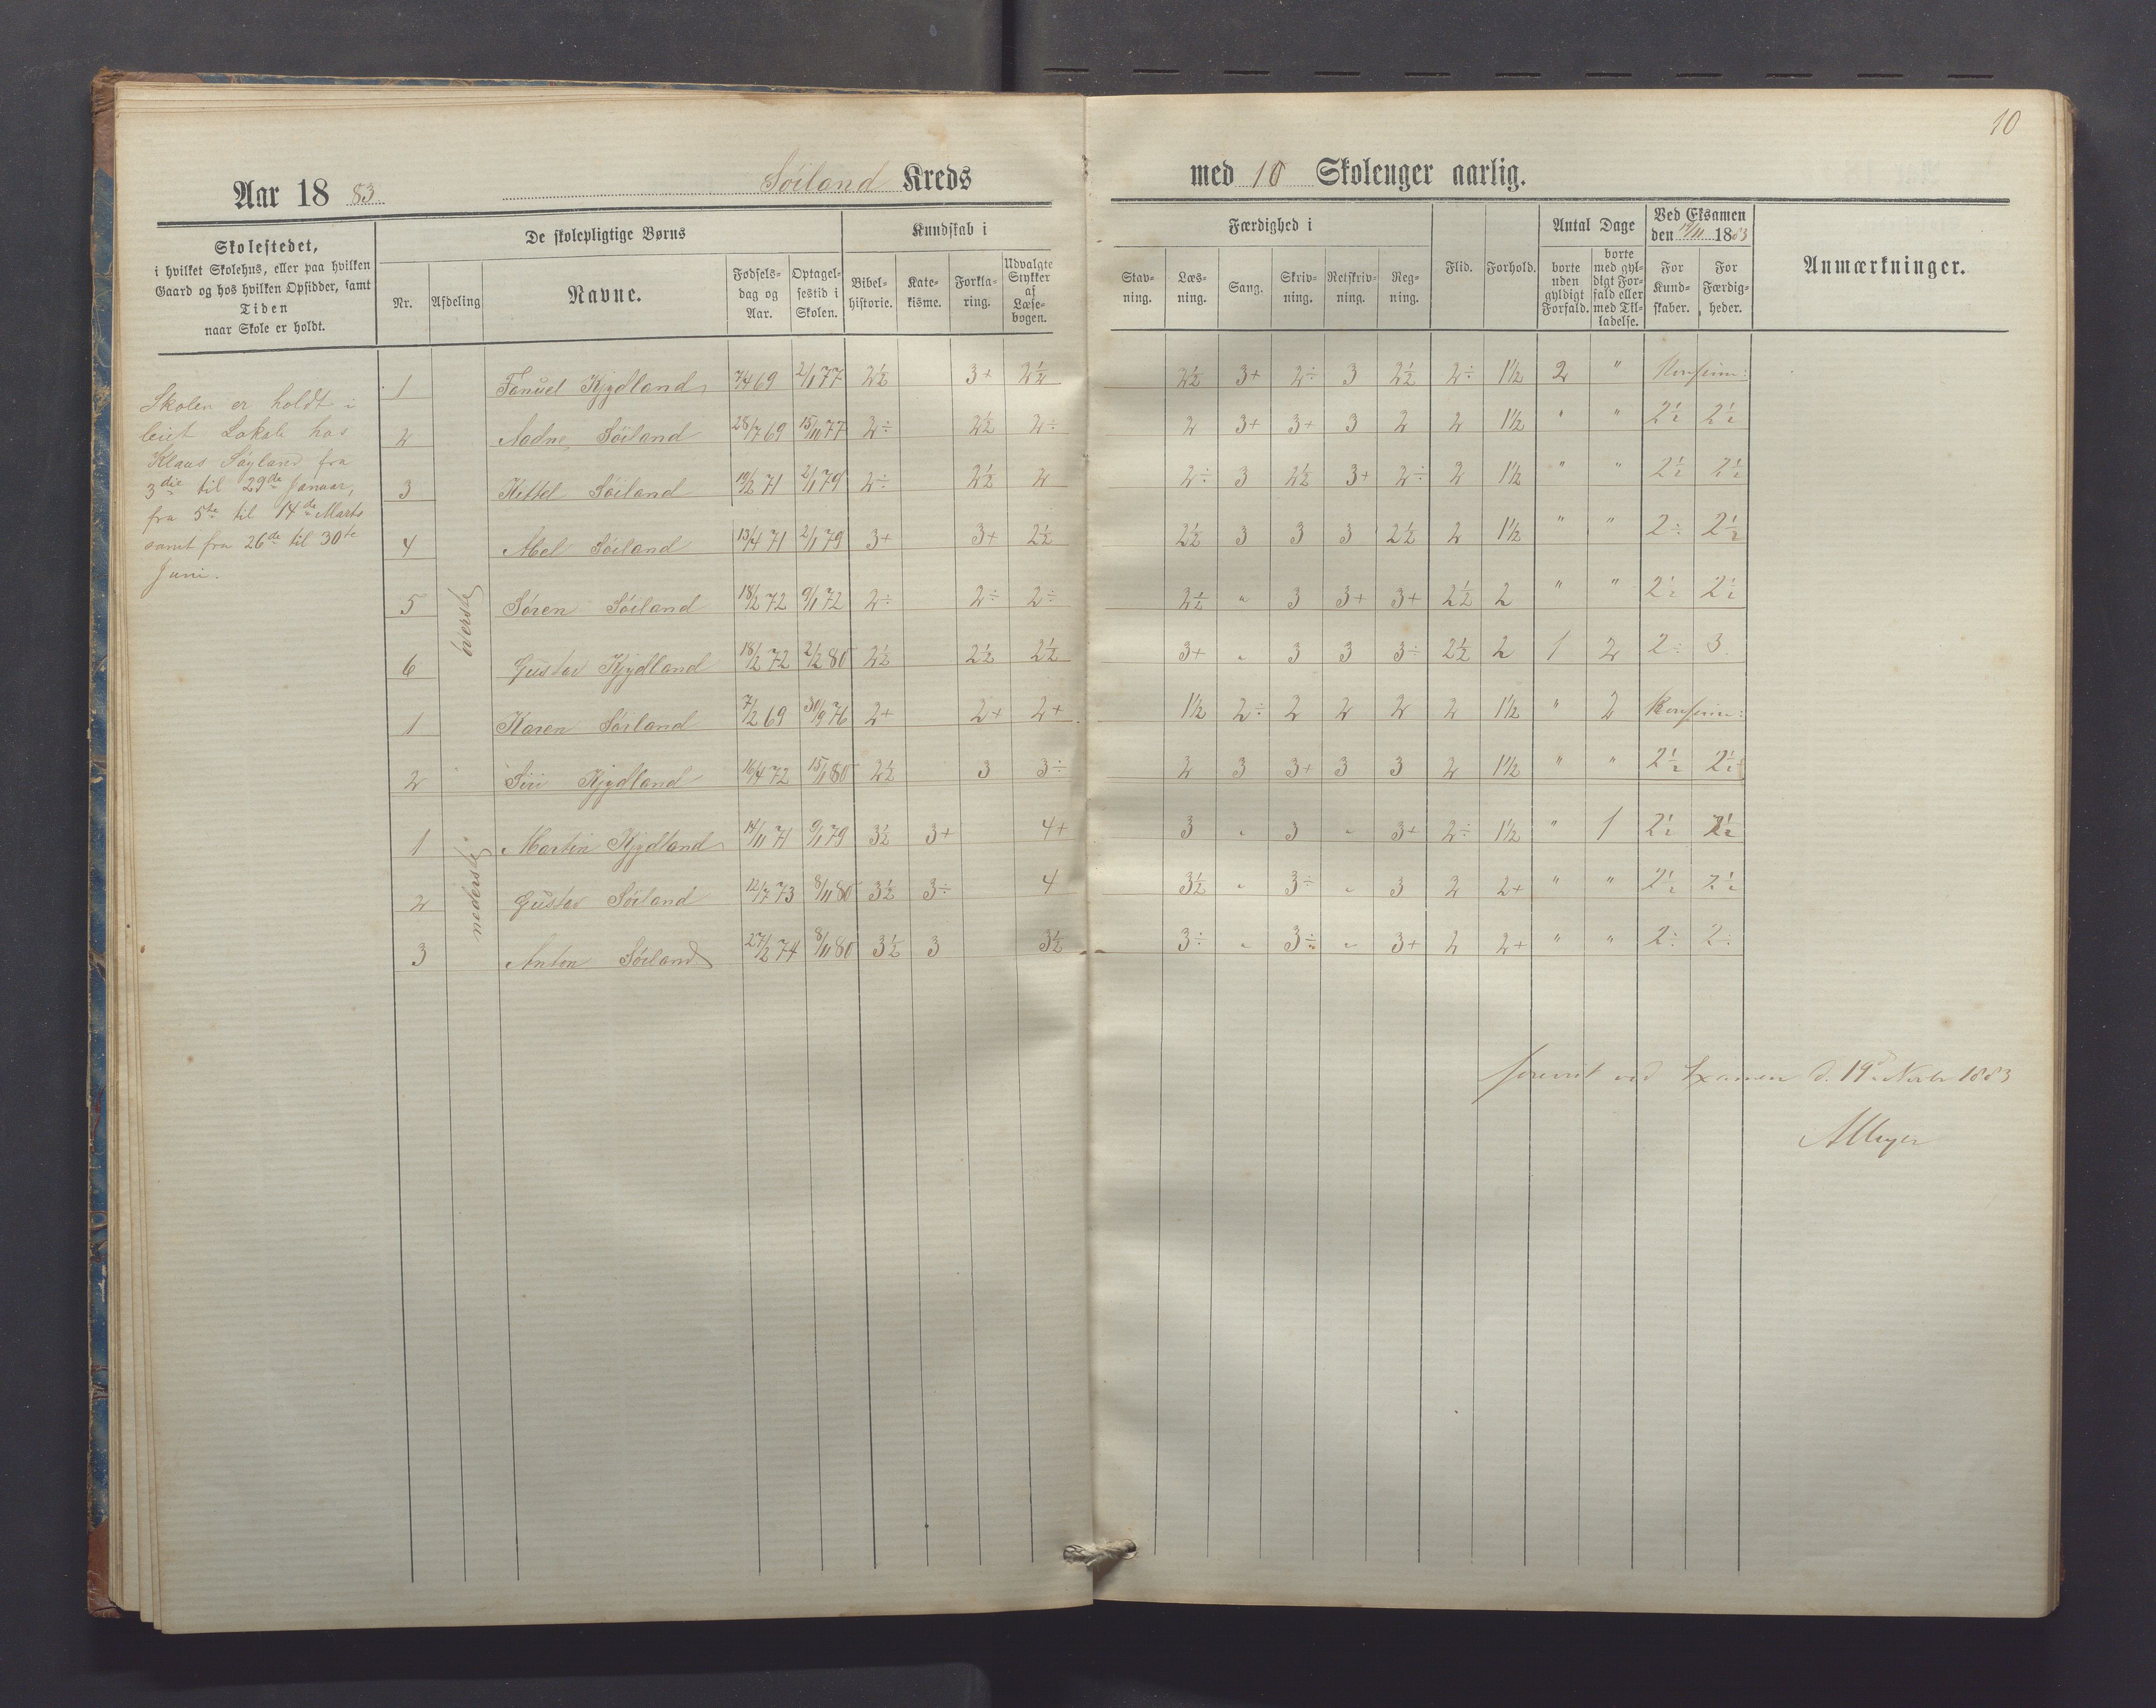 10
Aar 1883 Søiland Kreds med 10 Skoleuger aarlig.
Skolestedet, i hvilket Skolehus, eller paa hvilken Gaard og hos hvilken Opsidder, samt Tiden naar Skole er holdt.
De skolepligtige Børns
Nr. Afdeling Navne. Fødselsdag og Aar. Optagelsestid i Skolen.
Kundskab i
Bibelhistorie. Katekisme. Forklaring. Udvalgte Stykker af Læsebogen.
Færdighed i
Stavning. Læsning. Sang. Skrivning. Retskrivning. Regning.
Flid. Forhold.
Antal Dage
borte uden gyldigt Forfald. borte med gyldigt Forfald eller med Tilladelse.
Ved Eksamen den 19/11 1883
For Kundskaber. For Færdigheder.
Anmærkninger.
Skolen er holdt i
leiet Lokale hos
Klaus Søyland fra
3die til 29de Januar,
fra 5te til 14de Marts
samt fra 26de til 30te
Juni.
øverste
1 Fanuel Kjydland 7/4 69 2/1 77 2½ 3+ 2½ 2½ 3+ 2÷ 3 2½ 2÷ 1½ 2 " Konfirm:
2 Aadne Søiland 28/7 69 15/11 77 2÷ 2½ 2÷ 2 3+ 3+ 3 2 2 1½ " " 2½ 2½
3 Kittel Søiland 19/2 71 2/1 79 2÷ 2½ 2 2÷ 3 2½ 3+ 2÷ 2 1½ " " 2½ 2½
4 Abel Søiland 13/4 71 2/1 79 3+ 3+ 2½ 2½ 3 3 3 2½ 2 1½ " " 2÷ 2½
5 Søren Søiland 18/2 72 9/1 72 2÷ 2÷ 2÷ 2½ " 3 3+ 3+ 2½ 2 " " 2½ 2½
6 Gustav Kjydland 18/2 72 2/2 80 2½ 2½ 2½ 3+ " 3 3 3÷ 2½ 2 1 2 2÷ 3
1 Karen Søiland 7/2 69 30/9 76 2+ 2+ 2+ 1½ 2÷ 2 2 2 2 1½ " 2 Konfirm:
2 Siri Kjydland 16/4 72 15/1 80 2½ 3 3÷ 2 3 3+ 3 3 2 1½ " " 2½ 2½
nederste
1 Martin Kjydland 14/11 71 9/1 79 3½ 3+ 4+ 3 " 3 " 3+ 2÷ 1½ " 1 2½ 2½
2 Gustav Søiland 12/7 73 8/11 80 3½ 3÷ 4 3½ " 3÷ " 3 2 2+ " " 2½ 2½
3 Anton Søiland 27/2 74 8/11 80 3½ 3 3½ 3÷ " 3÷ " 3+ 2 2+ " " 2÷ 2÷
forevist ved Examen d. 19de Novbr 1883
AMeyer